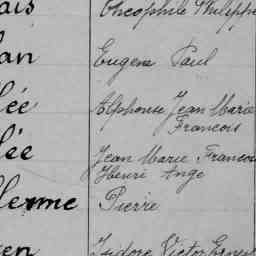 ais Théophile Philippe
an Eugène Paul
lée Alphonse Jean Marie
François
lée Jean Marie, François
Henri Ange
llerme Pierre
en Isidore Victor Ernest